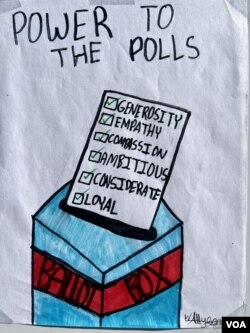 POWER TO
THE POLLS
GENEROSITY
EMPATHY
COMPASSION
AMBITIOUS
CONSIDERATE
LOYAL
BALLOT BOX
VOA